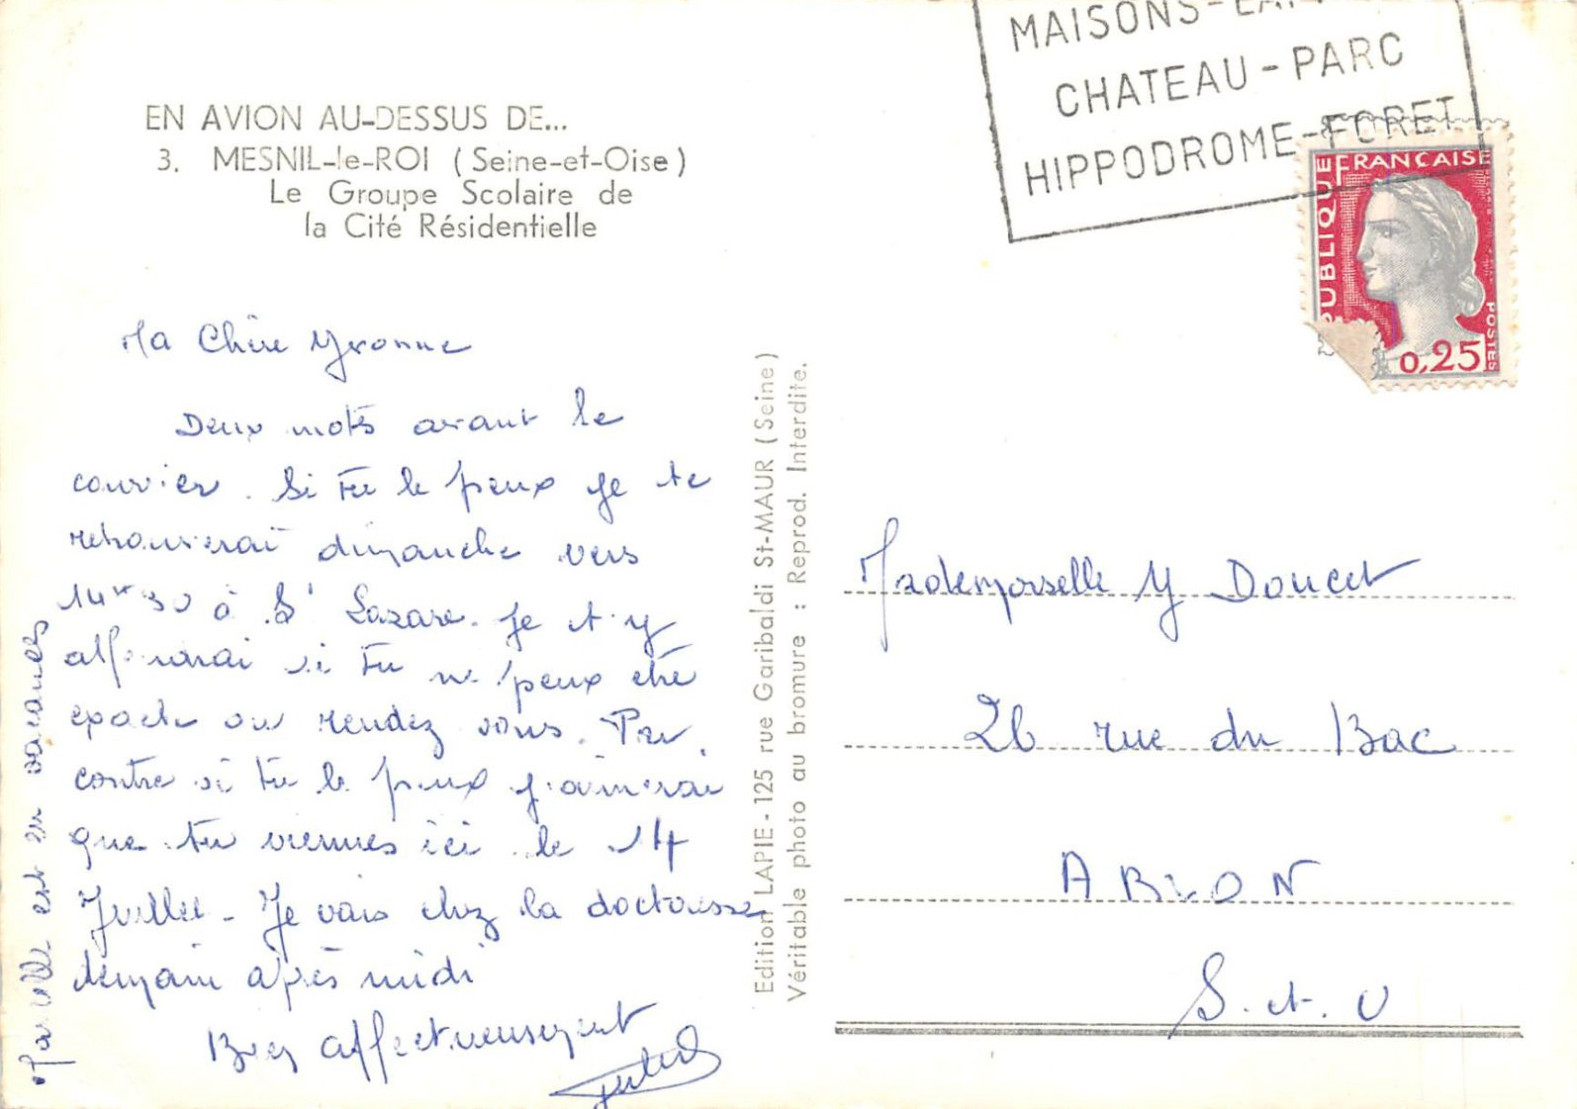 EN AVION AU-DESSUS DE...
3. MESNIL-le-ROI (Seine-et-Oise)
Le Groupe Scolaire de
la Cité Résidentielle
Ma Chère Yvonne
Deux mots avant le
courrier. Si tu le peux je te
retrouverai dimanche vers
14h 30 à St Lazare. Je t'y
attendrai si tu ne peux être
exacte au rendez vous. Par
contre si tu le peux j'aimerai
que tu viennes ici le 14
Juillet - Je vais chez la doctoresse
demain après midi
Bien affectueusement
Marcelle est en vacances
Edition LAPIE - 125 rue Garibaldi St-MAUR (Seine)
Véritable photo au bromure : Reprod. Interdite.
MAISONS-
CHATEAU - PARC
HIPPODROME-FORET
REPUBLIQUE FRANÇAISE
POSTES
0,25
Mademoiselle Y Doucet
26 rue du Bac
ABLON
S. et. O